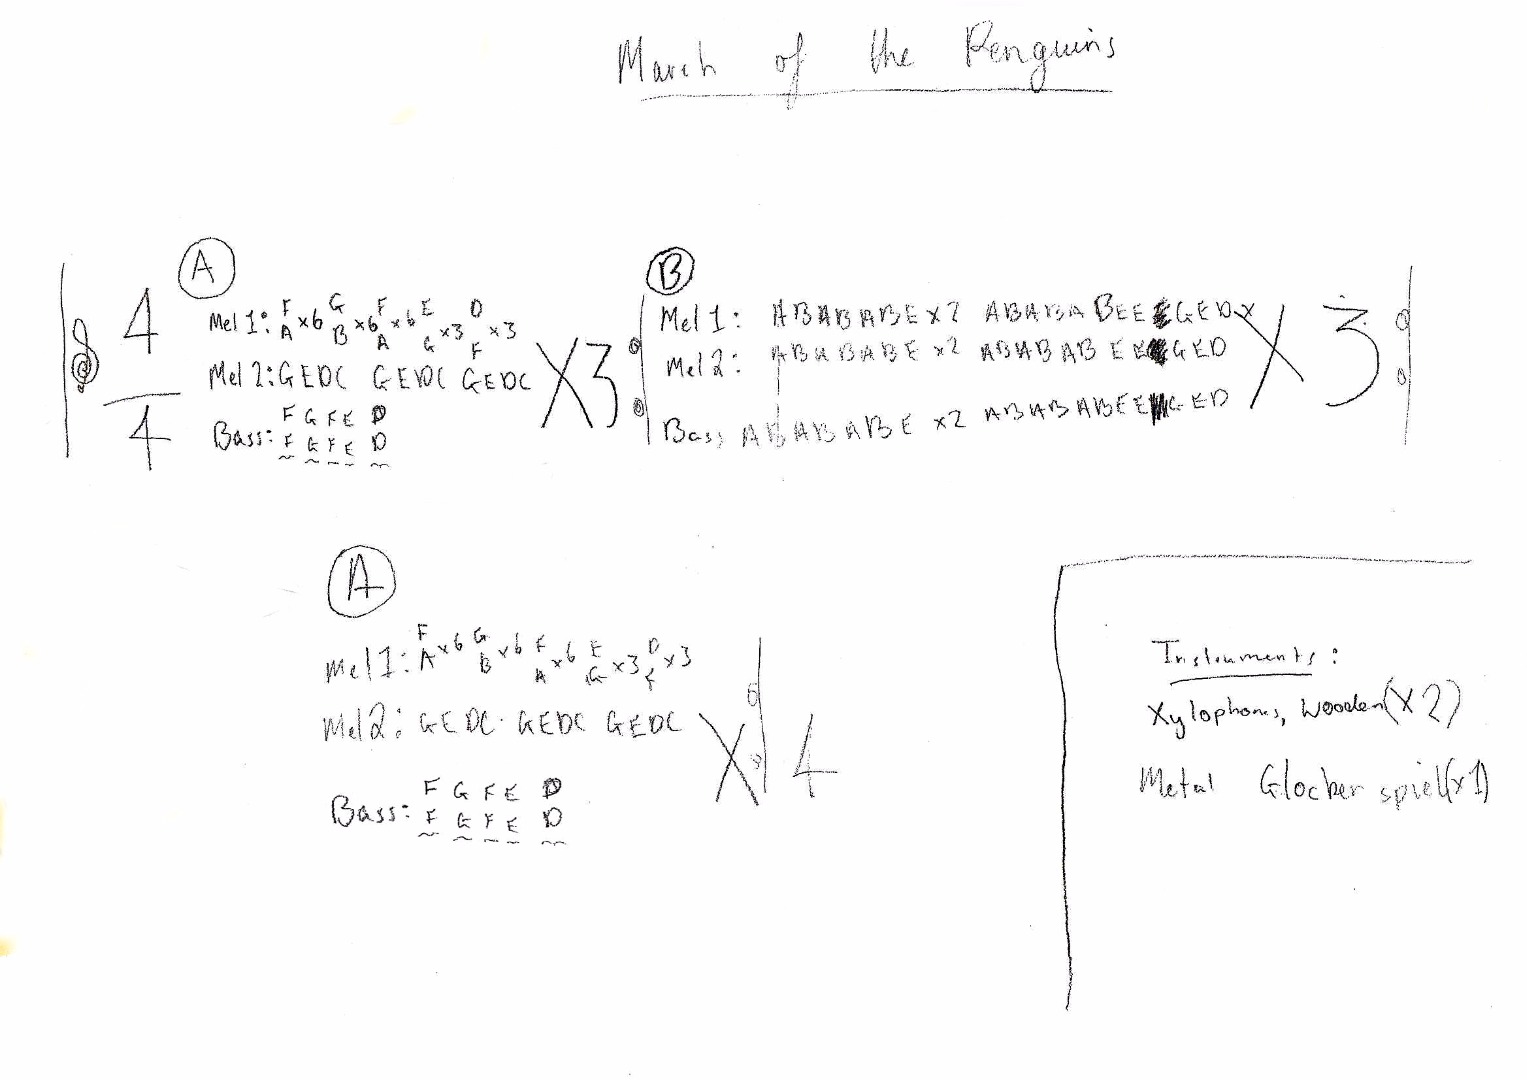 March of the Penguins
4
4
A
F G F E D
Mel 1: A x6 B x6 A x6 G x3 F x3
Mel 2: GEDC GEDC GEDC
F G F E D
Bass: F G F E D
X3
B
Mel 1: ABABABE x2 ABABABEE GED x
Mel 2: ABABABE x2 ABABABEE GED
Bass ABABABE x2 ABABABEE GED
X 3
A
F G F E D
Mel 1: A x6 B x6 A x6 G x3 F x3
Mel 2: GEDC GEDC GEDC
F G F E D
Bass: F G F E D
X 4
Instruments:
Xylophones, wooden (x2)
Metal Glockerspiel (x1)